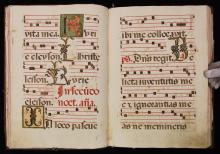 vita mea.
e eleyson.
leison. Kyrie
eleison.
In secūdo
noct. aña.
In loco pascue
ibi me collocavit.
ps. Dñs regit
licta iuventutis me
et ignorantias me
as ne memineris